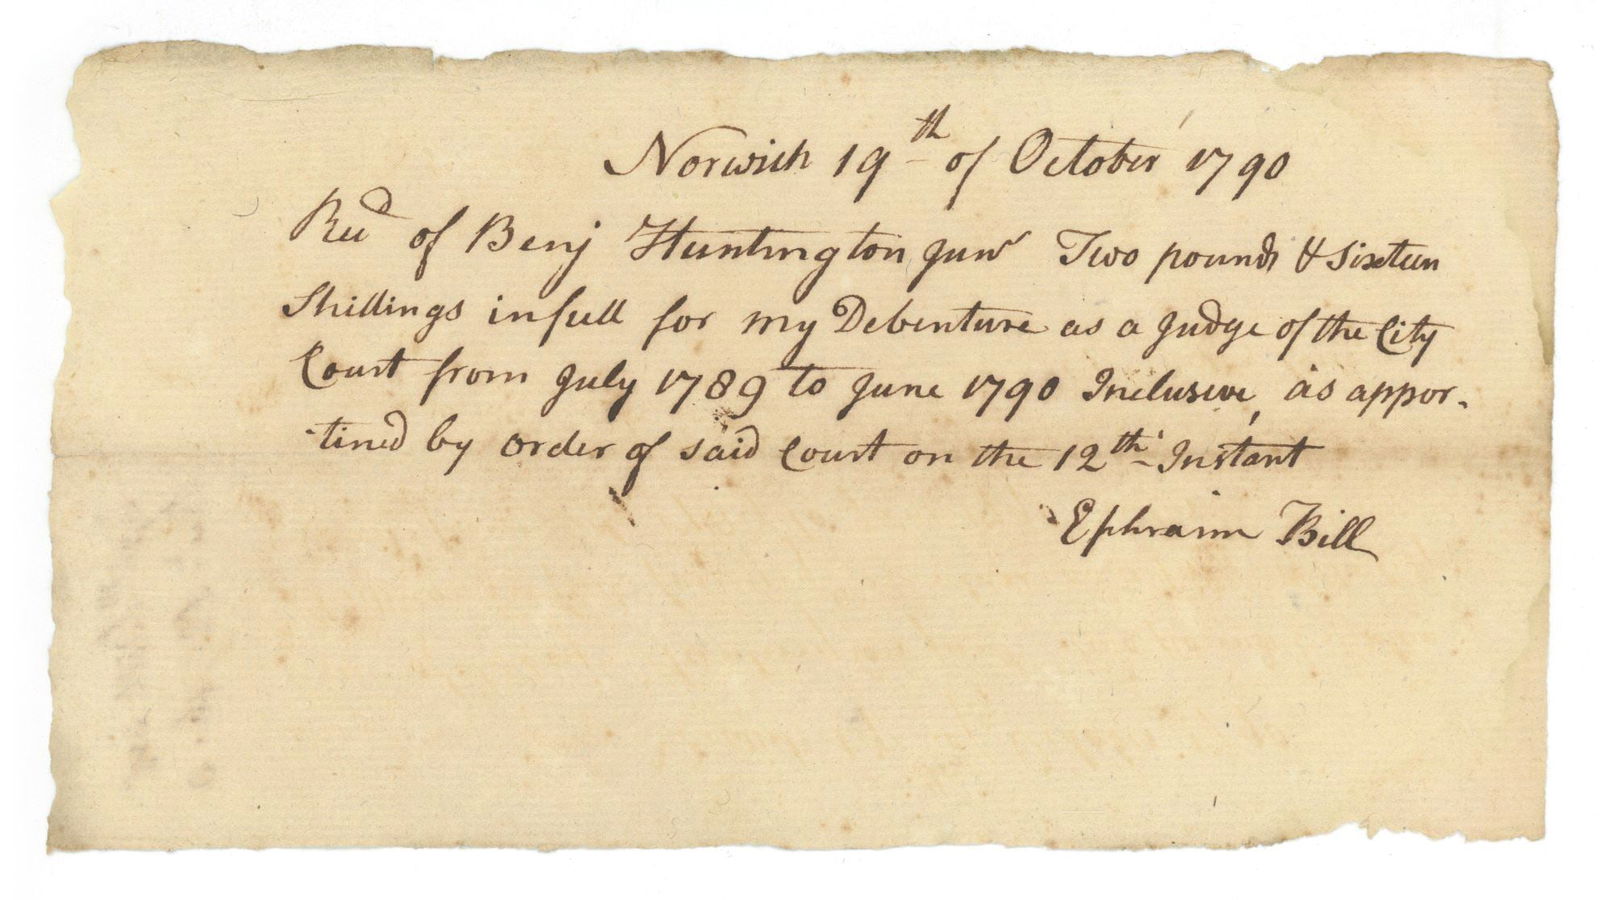 Norwich 19th of October 1790
Recd of Benj Huntington Junr Two pounds & Sixteen
Shillings in full for my Debenture as a Judge of the City
Court from July 1789 to June 1790 Inclusive, as appor-
-tined by order of said Court on the 12th Instant
Ephraim Bill